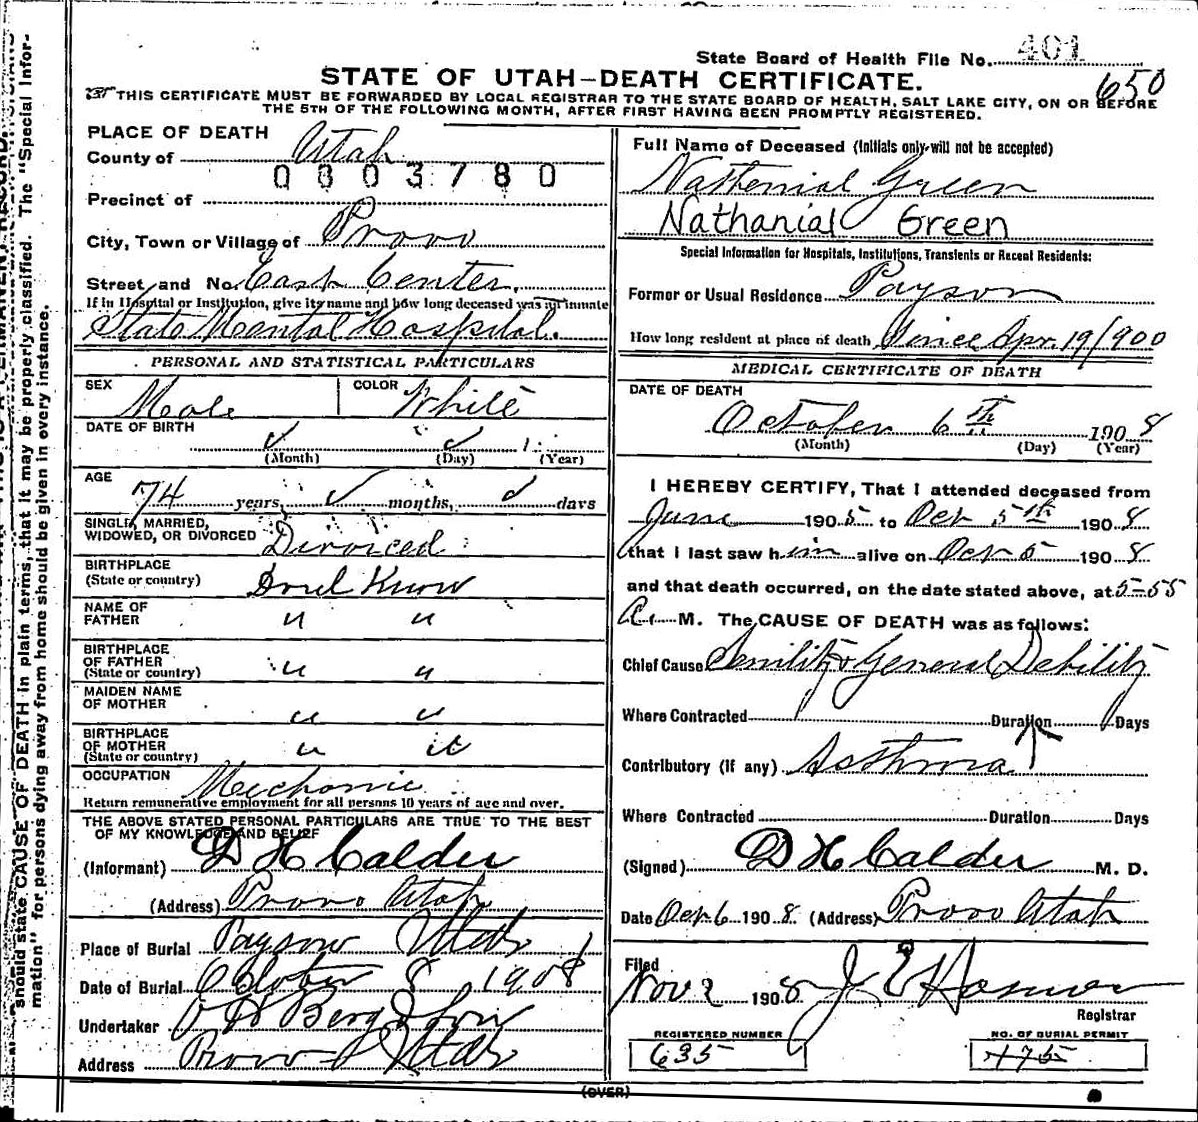 State Board of Health File No. 401
STATE OF UTAH—DEATH CERTIFICATE.
650
THIS CERTIFICATE MUST BE FORWARDED BY LOCAL REGISTRAR TO THE STATE BOARD OF HEALTH, SALT LAKE CITY, ON OR BEFORE
THE 5TH OF THE FOLLOWING MONTH, AFTER FIRST HAVING BEEN PROMPTLY REGISTERED.
should state CAUSE OF DEATH in plain terms, that it may be properly classified. The "Special Infor-
mation" for persons dying away from home should be given in every instance.
PLACE OF DEATH
County of Utah
0803780
Precinct of
City, Town or Village of Provo
Street and No. East Center
If in Hospital or Institution, give its name and how long deceased was an inmate
State Mental Hospital.
PERSONAL AND STATISTICAL PARTICULARS
SEX Male COLOR White
DATE OF BIRTH
(Month) (Day) 1 (Year)
AGE
74 years, months, days
SINGLE, MARRIED,
WIDOWED, OR DIVORCED Divorced
BIRTHPLACE
(State or country) Dont Know
NAME OF
FATHER " "
BIRTHPLACE
OF FATHER
(State or country) " "
MAIDEN NAME
OF MOTHER " "
BIRTHPLACE
OF MOTHER
(State or country) " "
OCCUPATION Mechanic
Return remunerative employment for all persons 10 years of age and over.
THE ABOVE STATED PERSONAL PARTICULARS ARE TRUE TO THE BEST
OF MY KNOWLEDGE AND BELIEF
(Informant) D H Calder
(Address) Provo Utah
Place of Burial Payson Utah
Date of Burial October 8 1908
Undertaker O H Berg & Son
Address Provo Utah
Full Name of Deceased (Initials only will not be accepted)
Nathenial Green
Nathanial Green
Special Information for Hospitals, Institutions, Transients or Recent Residents:
Former or Usual Residence Payson
How long resident at place of death Since Apr. 19/900
MEDICAL CERTIFICATE OF DEATH
DATE OF DEATH
October 6th 1908
(Month) (Day) (Year)
I HEREBY CERTIFY, That I attended deceased from
June 1905 to Oct 5th 1908
that I last saw him alive on Oct 5 1908
and that death occurred, on the date stated above, at 5-55
A. M. The CAUSE OF DEATH was as follows:
Chief Cause Senility & General Debility
Where Contracted Duration Days
Contributory (if any) Asthma
Where Contracted Duration Days
(Signed) D H Calder M. D.
Date Oct 6 1908 (Address) Provo Utah
Filed
Nov 2 1908 J E Hosmer
Registrar
REGISTERED NUMBER
635
NO. OF BURIAL PERMIT
1765
(OVER)